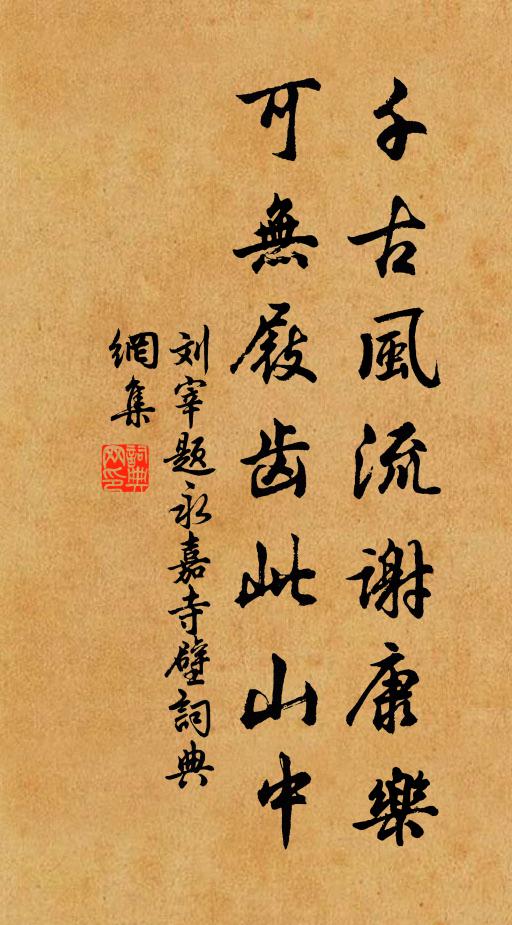 千古風流謝康樂
可無屐齿此山中
刘宰题永嘉寺壁詞典
網集
詞典網印